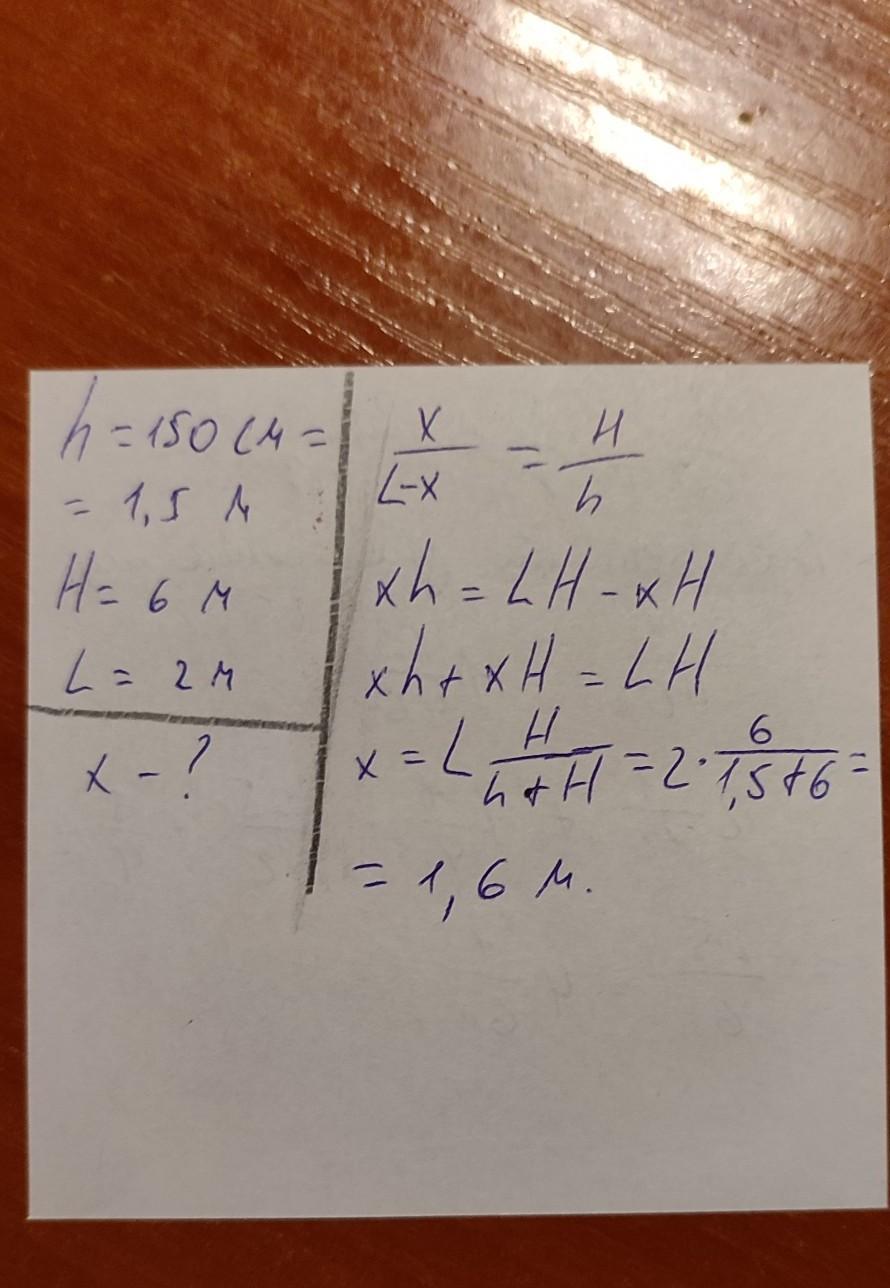 h = 150 см =
= 1,5 м
H = 6 м
L = 2 м
x - ?
x/(L-x) = H/h
xh = LH - xH
xh + xH = LH
x = L H/(h+H) = 2 · 6/(1,5+6) =
= 1,6 м.